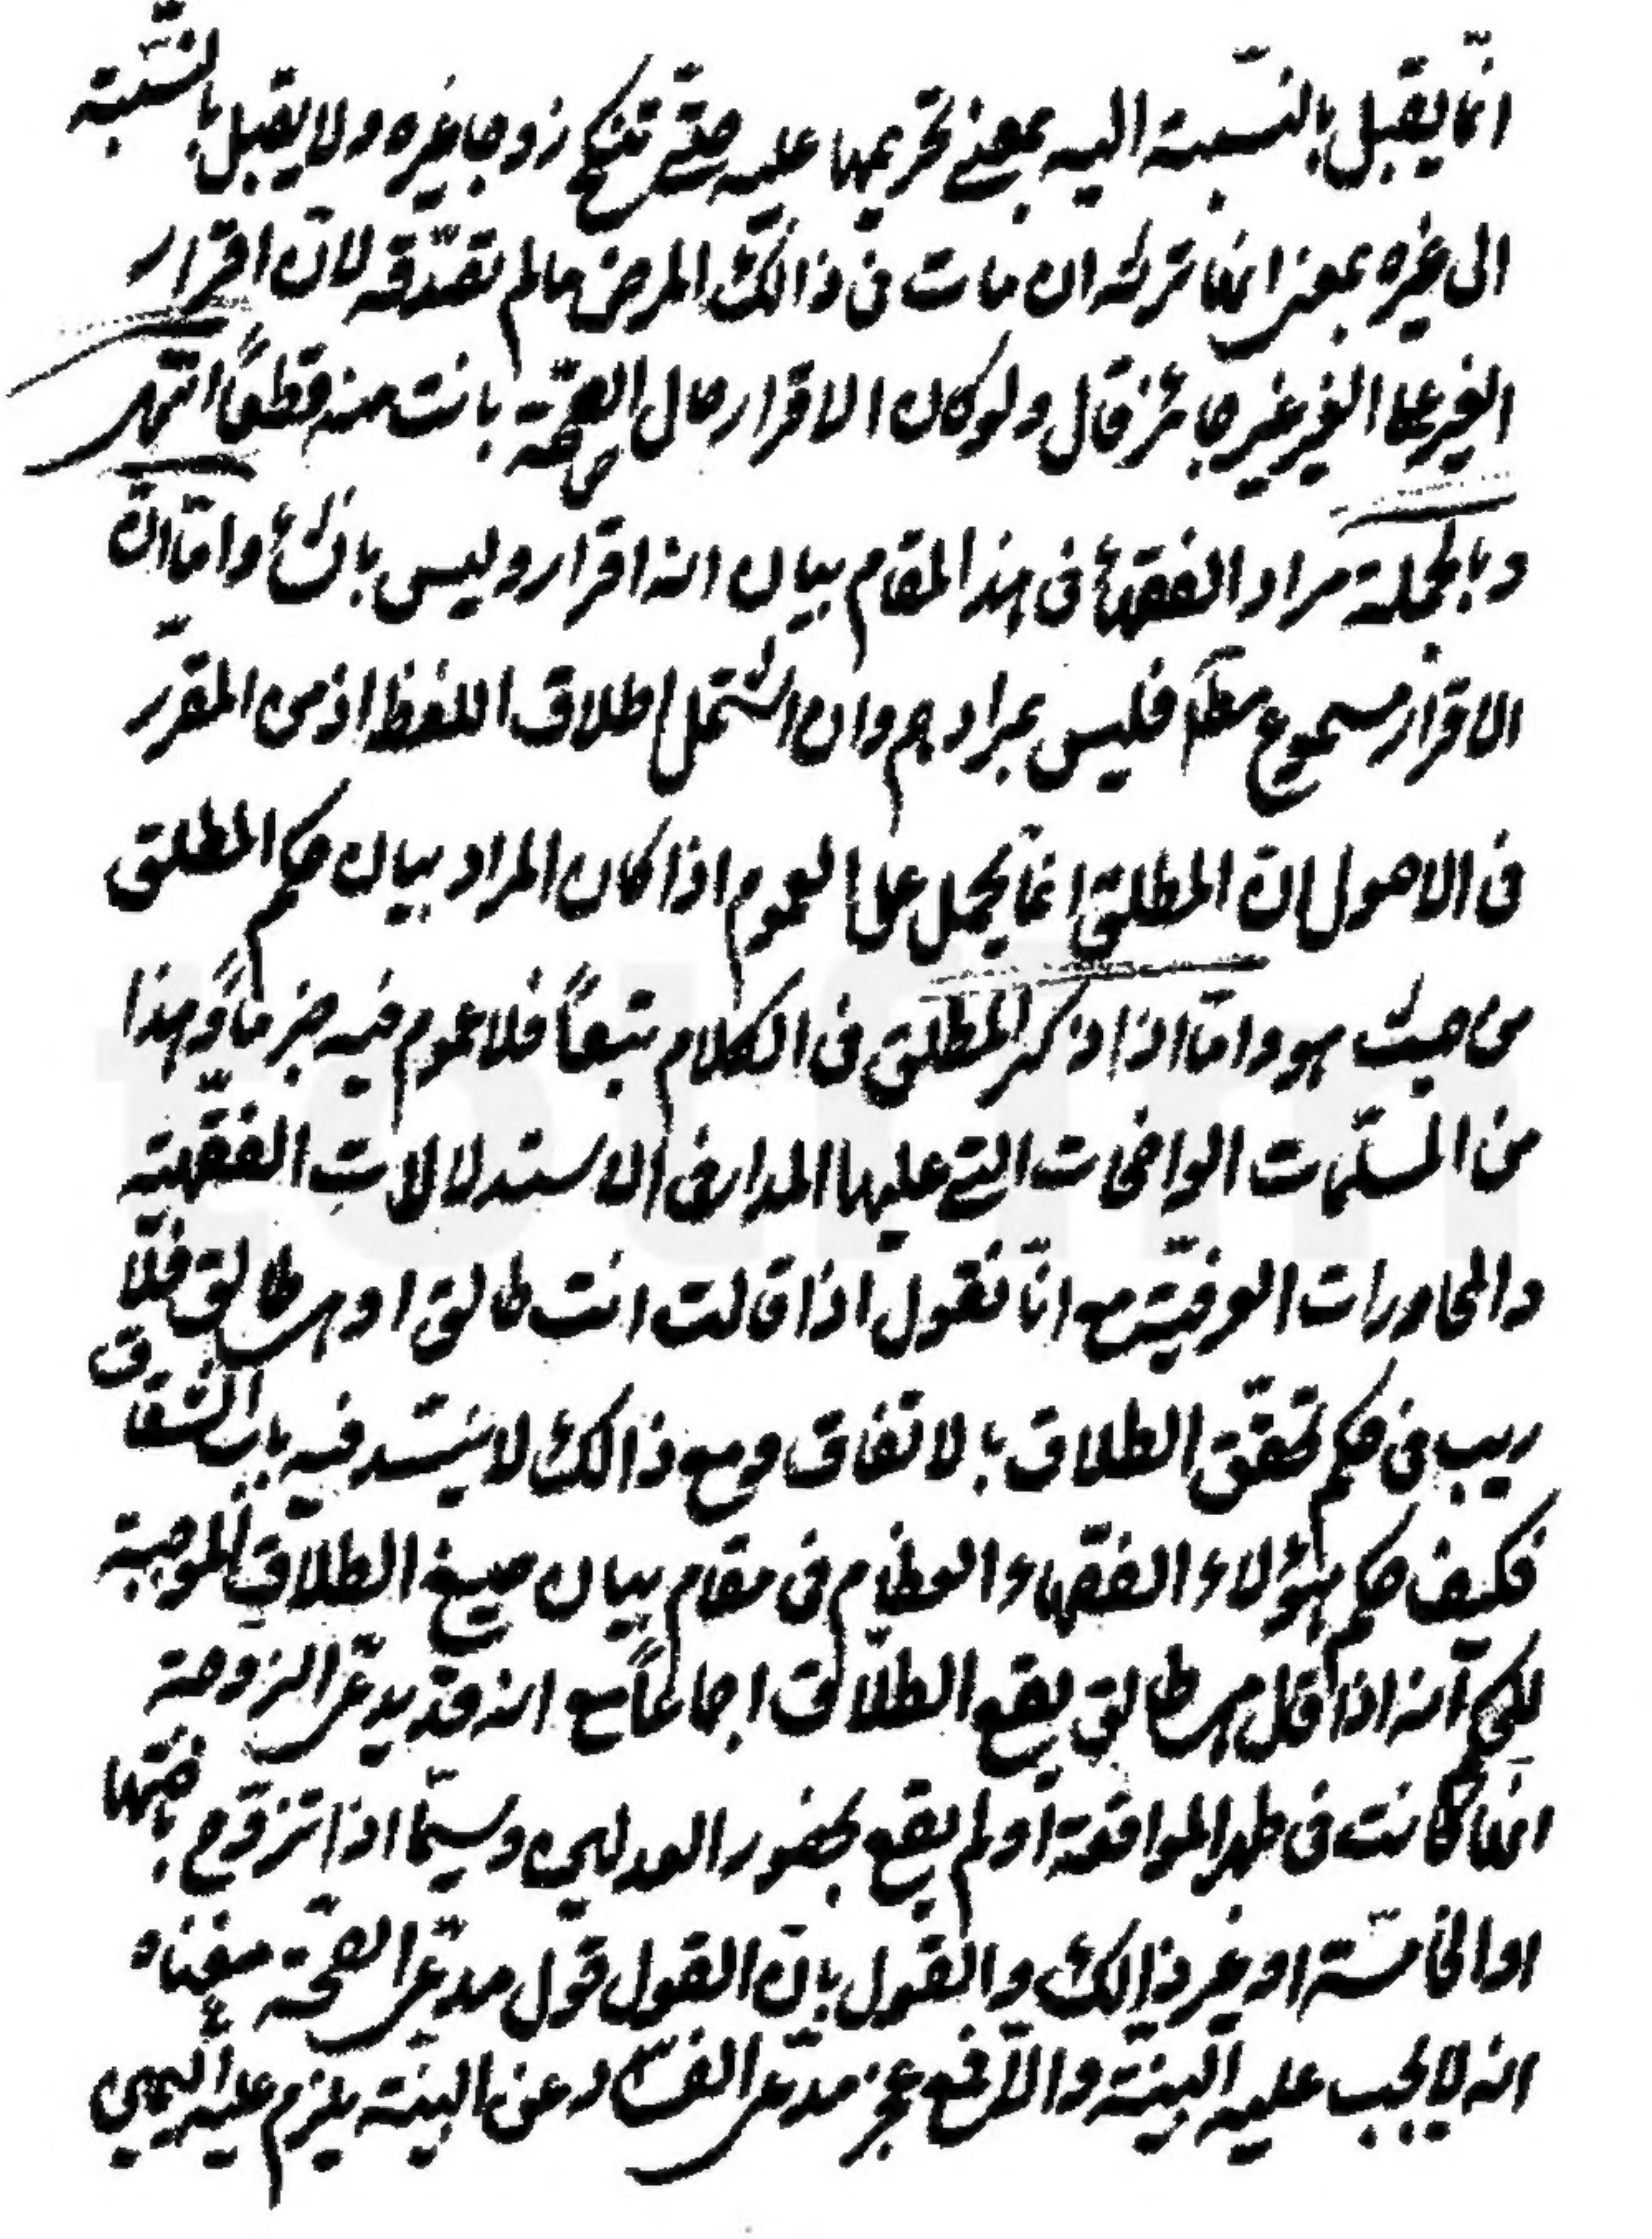 انّما يقبل بالنسبة اليه بمعنى تحريمها عليه حتّى تنكح زوجا غيره ولا يقبل بالنّسبة
الى غيره بمعنى انها ترثه ان مات فى ذالك المرض ما لم تصدّقه لانّ اقرار
الغير على الغير غير جائز قال ولو كان الاقرار حال الصحّة بانت منه قطعاً انتهى
وبالجملة مراد الفقهاء فى هذا المقام بيان انه اقرار وليس بانشاء وامّا انّ
الاقرار مسموع مطلقا فليس بمرادهم وان اشتمل اطلاق اللفظ اذ من المقرّر
فى الاصول انّ المطلق انما يحمل على العموم اذا كان المراد بيان حكم المطلق
من حيث هو وامّا اذا ذكر المطلق فى الكلام تبعاً فلا عموم فيه جزماً وهذا
من المسلّمات الواضحات التى عليها المدار فى الاستدلالات الفقهيّة
والمحاورات العرفيّة مع انّا نقول اذا قالت انت طالق او هى طالق فلا
ريب فى حكم تحقّق الطلاق بالاتفاق ومع ذالك لا ينسّد فيه باب الشقاق
فكيف حكم هؤلاء الفقهاء العظام فى مقام بيان صيغ الطلاق الموجبة
لكى انه اذا قل هى طالق يقع الطلاق اجماعاً مع انه قد يدعى الزوجة
انها كانت فى طهر المواقعة او لم يقع بحضور العدلين وسيّما اذا تزوّج باختها
او الخامسة او غير ذالك والقول بانّ القول قول مدّعى الصحّة معناه
انه لا يجب عليه البينّة والّا فمع عجز مدّعى الفساد عن البينّة يلزم عليه اليمين